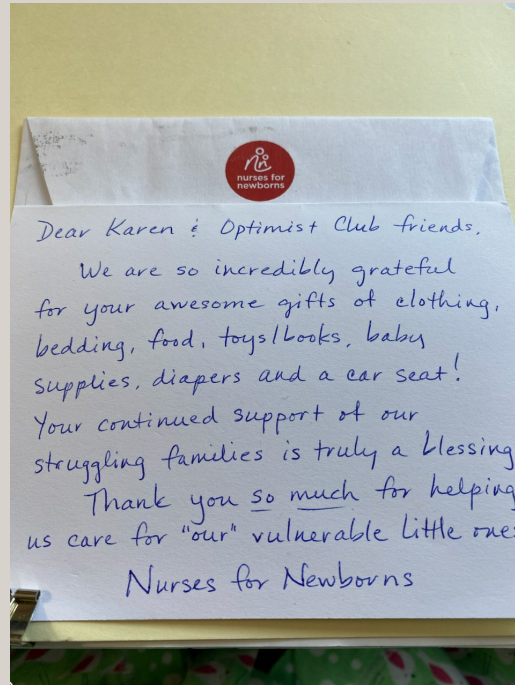 nurses for
newborns
Dear Karen & Optimist Club friends,
We are so incredibly grateful
for your awesome gifts of clothing,
bedding, food, toys/books, baby
supplies, diapers and a car seat!
Your continued support of our
struggling families is truly a blessing
Thank you so much for helping
us care for "our" vulnerable little ones
Nurses for Newborns